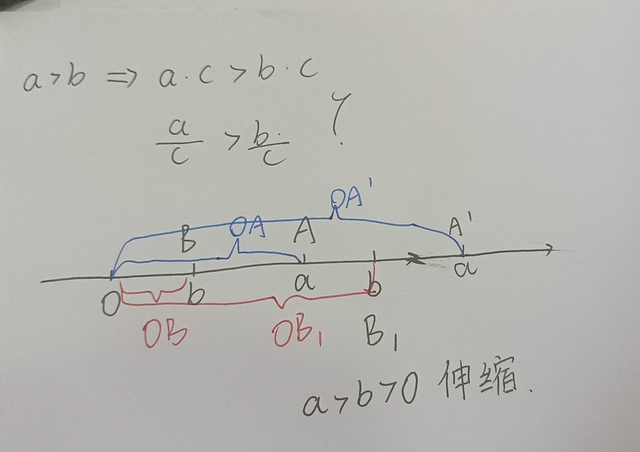 a>b ⇒ a·c>b·c
a/c > b/c ?
OA'
B OA A A'
O b a b a
OB OB₁ B₁
a>b>0 伸缩.